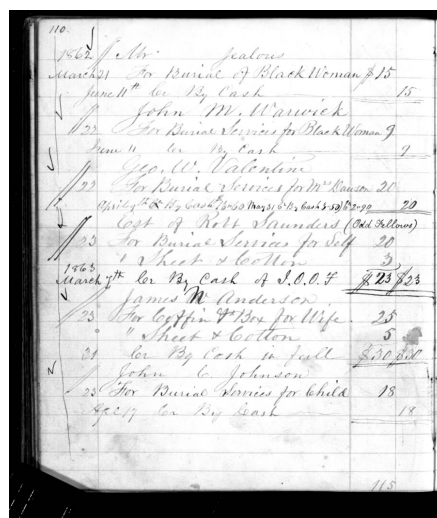 110.
1862 // Mr. Jealous
March 21 For Burial of Black Woman $15
June 11th Cr By Cash 15
// John M. Warwick
" 22 For Burial Services for Black Woman 9
June 11 Cr By Cash 9
// Geo. W. Valentine
" 22 For Burial Services for Mrs Dawson 20
April 9th Cr By Cash May 31st By Cash 20
// Est of Robt Saunders (Odd Fellows)
" 23 For Burial Services for Self 20
" Sheet & Cotton 3
1863
March 7th Cr By Cash of I.O.O.F $23 $23
// James W Anderson
" 23 For Coffin & Box for Wife 25
" Sheet & Cotton 5
Cr By Cash in full $30 $30
// John C Johnson
" 23 For Burial Services for Child 18
Cr By Cash 18
115